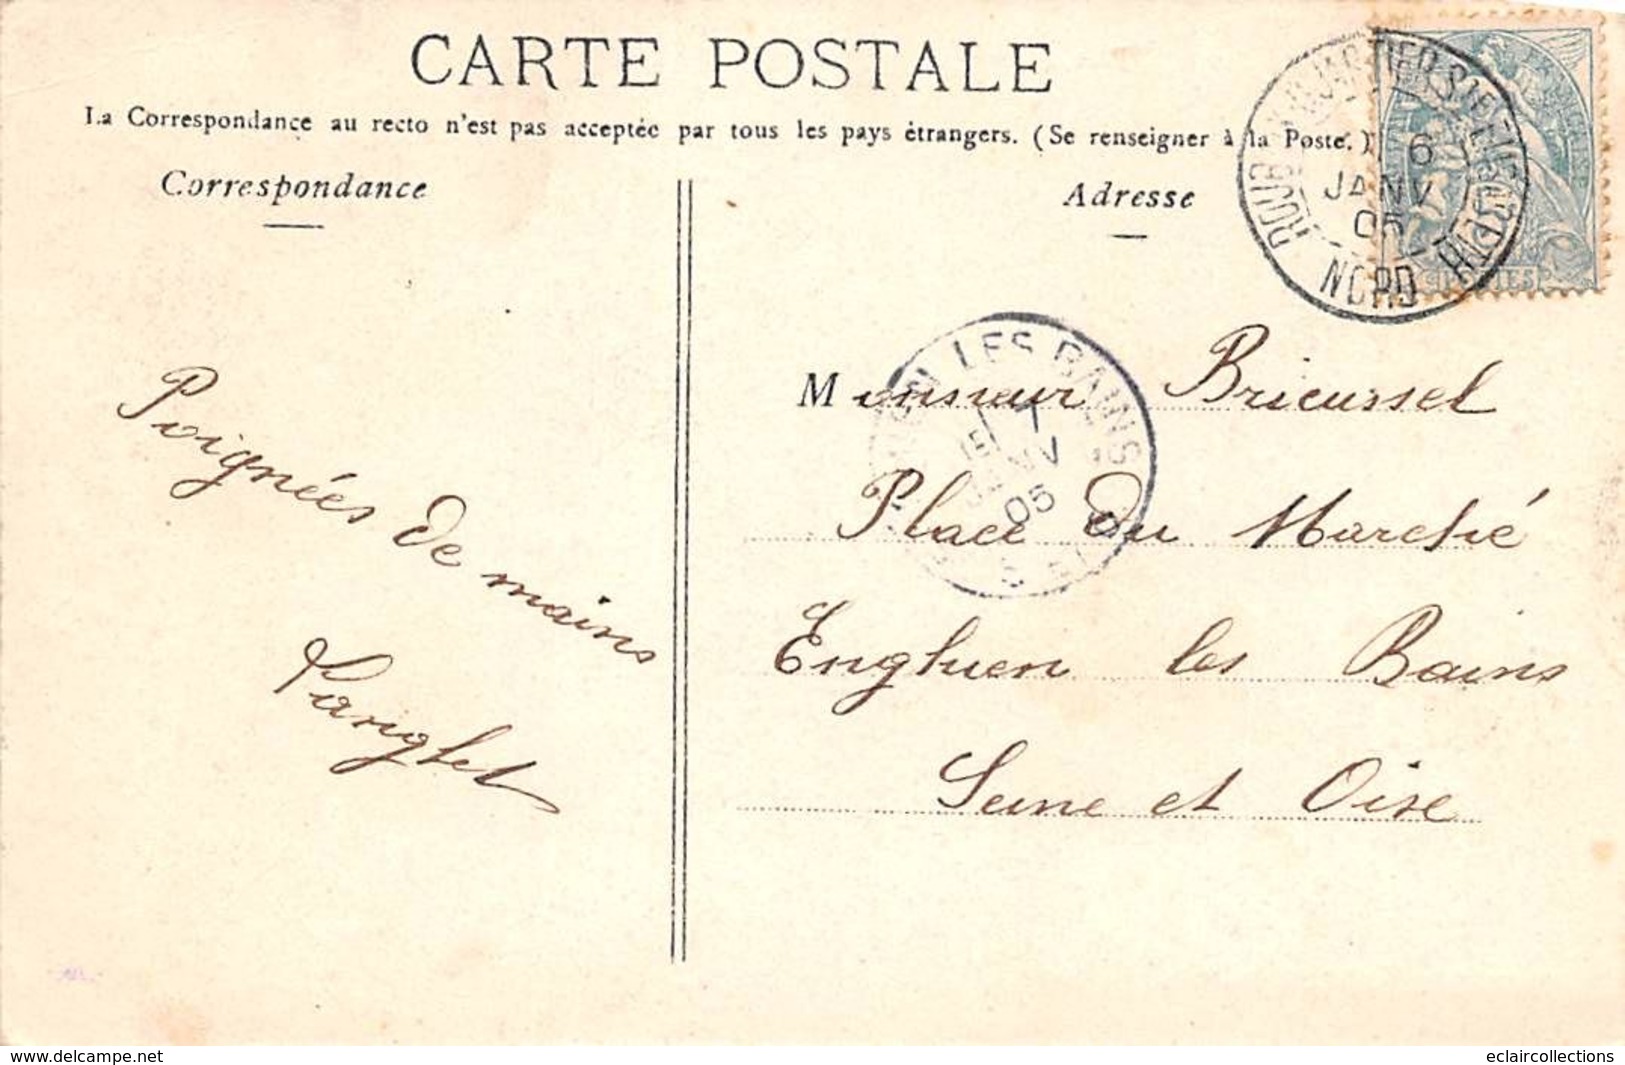 CARTE POSTALE
La Correspondance au recto n'est pas acceptée par tous les pays étrangers. (Se renseigner à la Poste.)
Correspondance
Adresse
6
JANV
05
NORD
LES BAINS
05
Poignées de mains
Langlet
Monsieur Brieussel
Place du Marché
Enghien les Bains
Seine et Oise
www.delcampe.net
eclaircollections